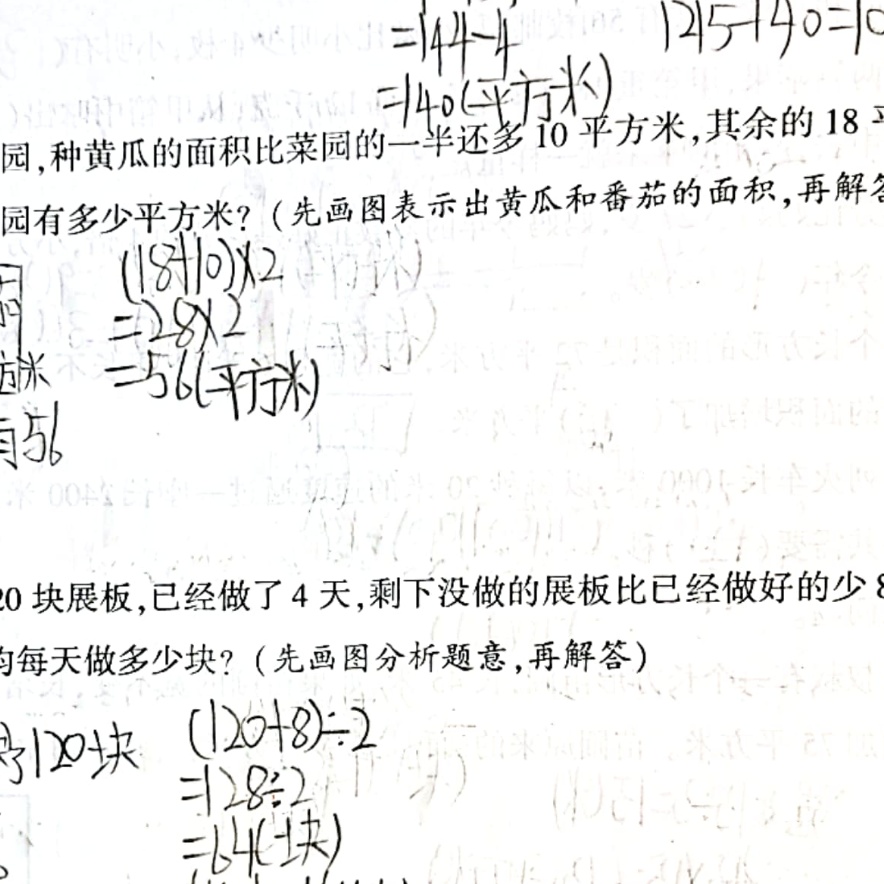 =144-4
1215-140=10
=140(平方米)
园,种黄瓜的面积比菜园的一半还多 10 平方米,其余的 18 平
园有多少平方米?(先画图表示出黄瓜和番茄的面积,再解答
(18+10)×2
=28×2
方米 =56(平方米)
有56
20 块展板,已经做了 4 天,剩下没做的展板比已经做好的少 8
均每天做多少块?(先画图分析题意,再解答)
120块 (120+8)÷2
=128÷2
=64(块)